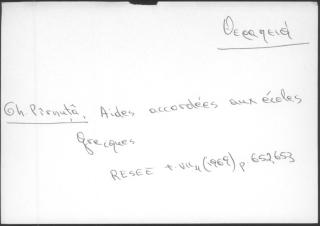 Θεραπειά
Gh. Pîrnuţă, Aides accordées aux écoles
grecques
RESEE t. VII4 (1969) p 652,653